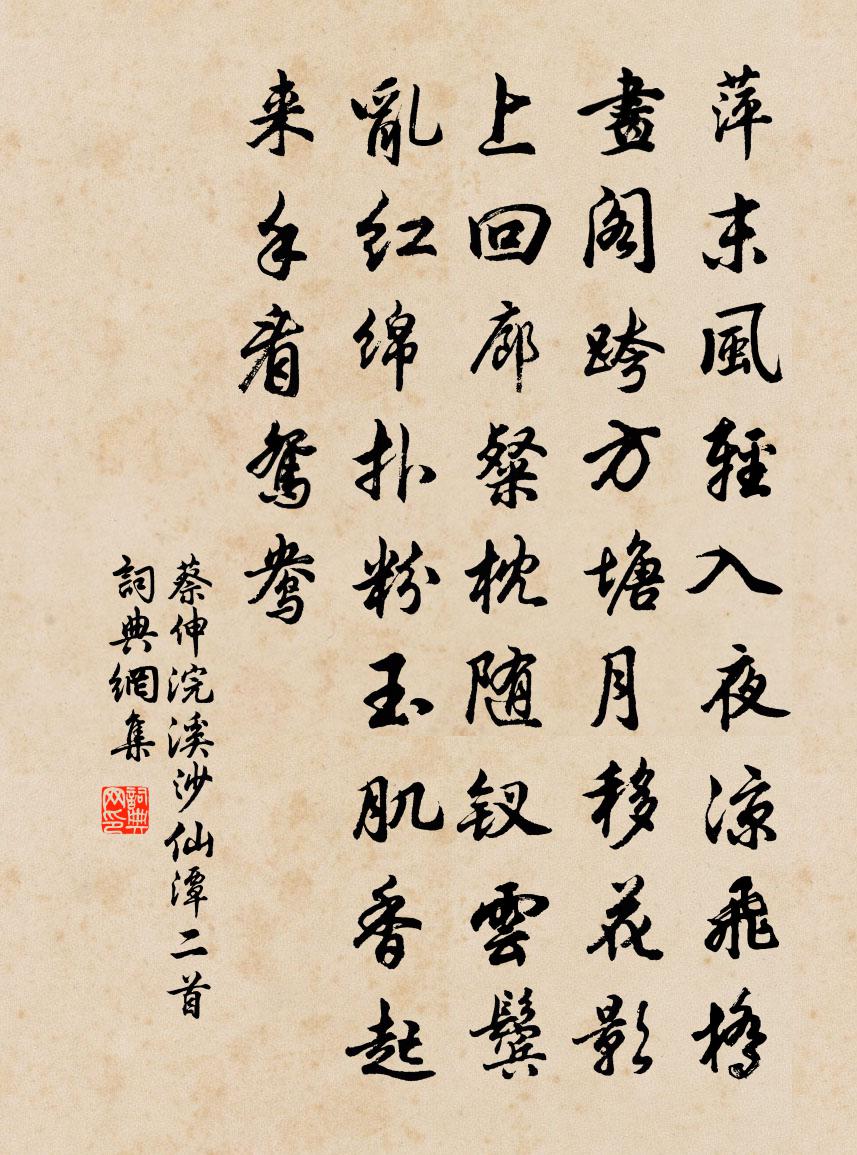 萍末風輕入夜涼飛橋
畫閣跨方塘月移花影
上回廊粲枕随钗雲鬢
亂红绵扑粉玉肌香起
来手看鴛鴦
蔡伸浣溪沙仙潭二首
詞典網集
詞典
网印